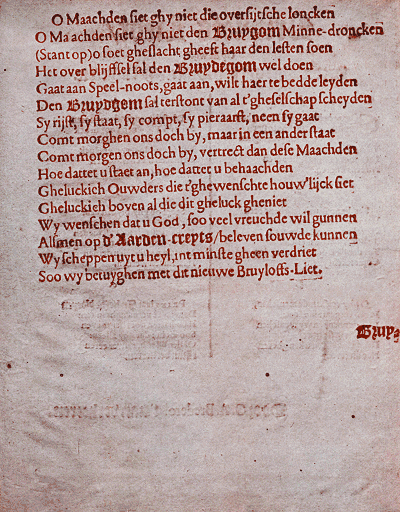 O Maachden siet ghy niet die oversijtsche loncken
O Maachden siet ghy niet den Bruygom Minne-droncken
(Stant op) o soet gheslacht gheeft haar den lesten soen
Het over blijffsel sal den Bruydegom wel doen
Gaat aan Speel-noots, gaat aan, wilt haer te bedde leyden
Den Bruydgom sal terstont van al t'gheselschap scheyden
Sy rijst, sy staat, sy compt, sy pieraarst, neen sy gaat
Comt morghen ons doch by, maar in een ander staat
Comt morgen ons doch by, vertrect dan dese Maachden
Hoe dattet u staet an, hoe dattet u behaachden
Gheluckich Ouwders die t'ghewenschte houw'lijck siet
Gheluckich boven al die dit gheluck gheniet
Wy wenschen dat u God, soo veel vreuchde wil gunnen
Alsmen op d'Aarden-creyts/ beleven souwde kunnen
Wy scheppen uyt u heyl, int minste gheen verdriet
Soo wy betuyghen met dit nieuwe Bruyloffs-Liet.
Bruy-